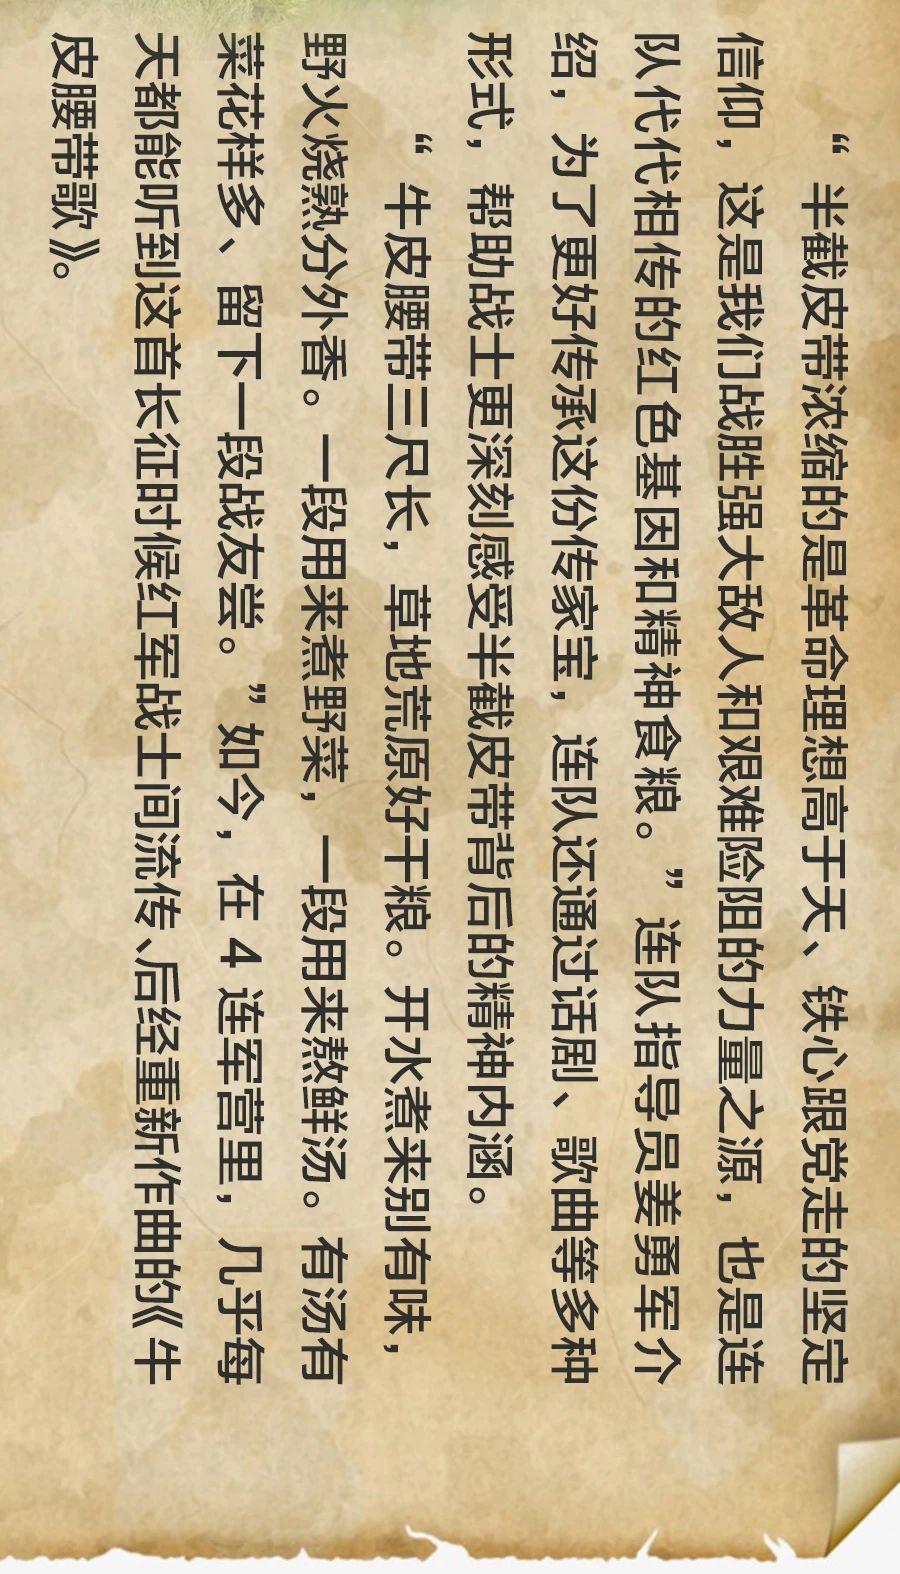 “半截皮带浓缩的是革命理想高于天、铁心跟党走的坚定
信仰，这是我们战胜强大敌人和艰难险阻的力量之源，也是连
队代代相传的红色基因和精神食粮。”连队指导员姜勇军介
绍，为了更好传承这份传家宝，连队还通过话剧、歌曲等多种
形式，帮助战士更深刻感受半截皮带背后的精神内涵。
“牛皮腰带三尺长，草地荒原好干粮。开水煮来别有味，
野火烧熟分外香。一段用来煮野菜，一段用来熬鲜汤。有汤有
菜花样多、留下一段战友尝。”如今，在4连军营里，几乎每
天都能听到这首长征时候红军战士间流传、后经重新作曲的《牛
皮腰带歌》。